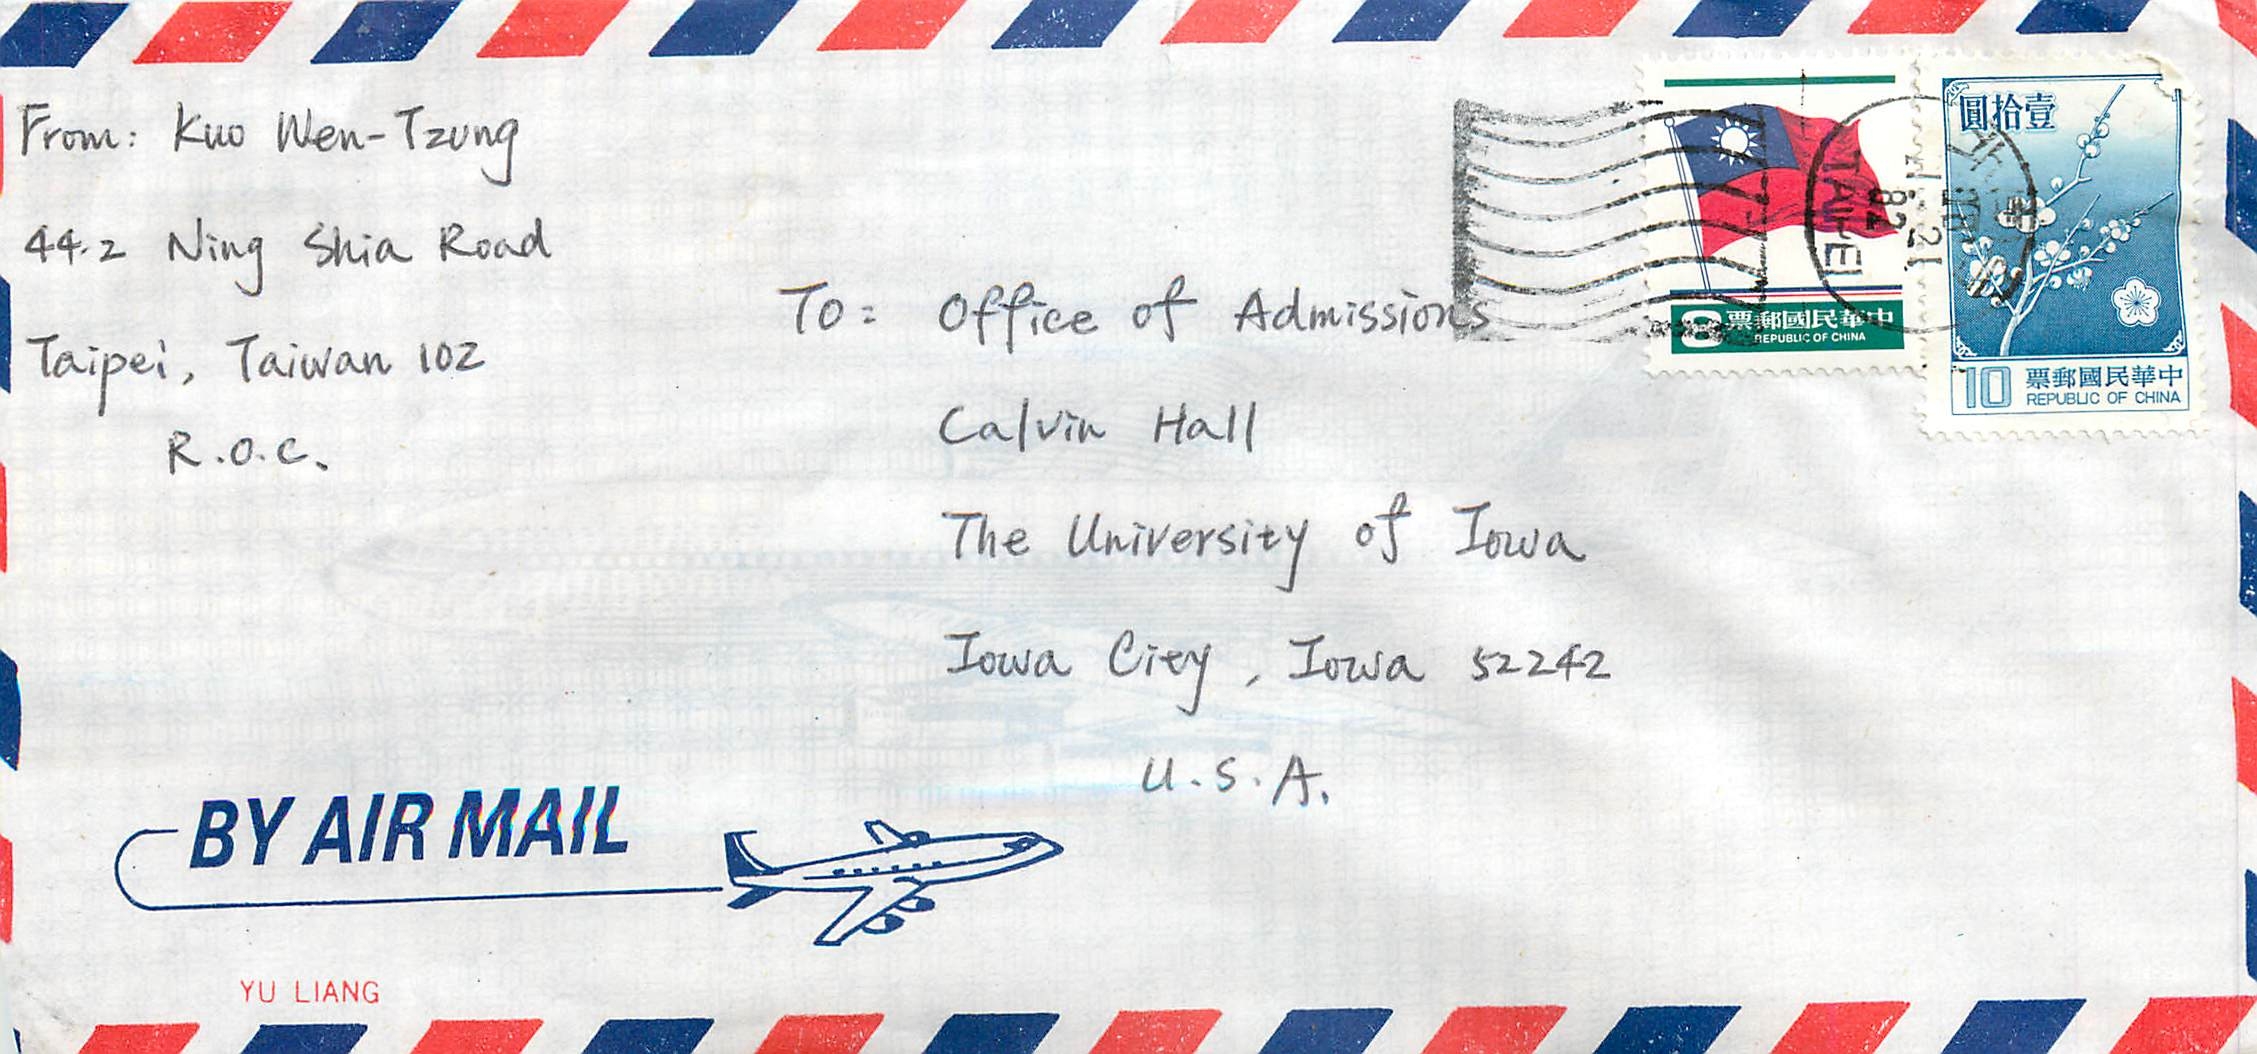 From: Kuo Wen-Tzung
44.2 Ning Shia Road
Taipei, Taiwan 102
R.O.C.
To: Office of Admissions
Calvin Hall
The University of Iowa
Iowa City, Iowa 52242
U.S.A.
票郵國民華中
8 REPUBLIC OF CHINA
圓拾壹
10 票郵國民華中
REPUBLIC OF CHINA
TAIPEI
82
21
BY AIR MAIL
YU LIANG